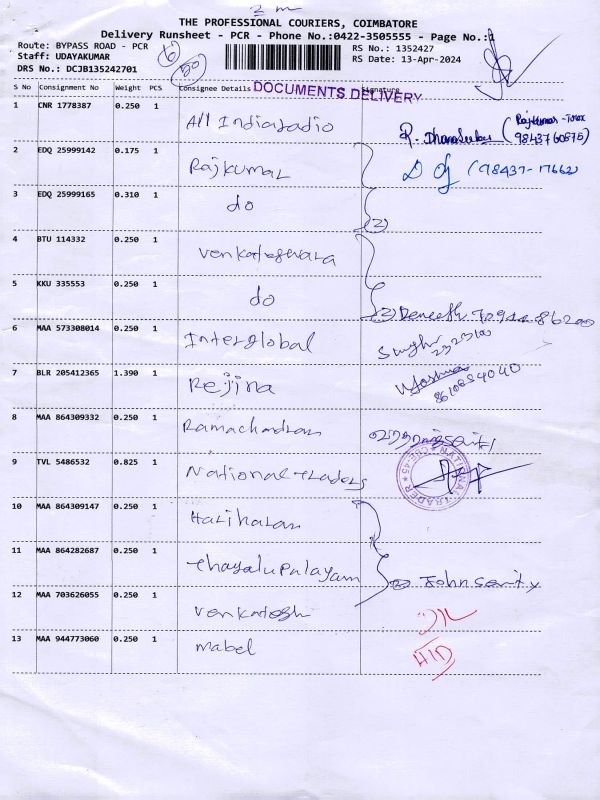 2 m
THE PROFESSIONAL COURIERS, COIMBATORE
Delivery Runsheet - PCR - Phone No.:0422-3505555 - Page No.:1
Route: BYPASS ROAD - PCR
RS No.: 1352427
Staff: UDAYAKUMAR
RS Date: 13-Apr-2024
DRS No.: DCJB135242701
6
50
DOCUMENTS DELIVERY
S No Consignment No Weight PCS Consignee Details Signature
1 CNR 1778387 0.250 1 All Indiaradio
Rajkumar
9843760875)
2 EDQ 25999142 0.175 1 Rajkumar (98437-17662)
3 EDQ 25999165 0.310 1 do (2)
4 BTU 114332 0.250 1 Venkateswara
5 KKU 335553 0.250 1 do (2)
6 MAA 573308014 0.250 1 Interglobal Singh
7 BLR 205412365 1.390 1 Rejina
8610854040
8 MAA 864309332 0.250 1 Ramachandran
9 TVL 5486532 0.825 1 National traders
NATIONAL TRADER
10 MAA 864309147 0.250 1 Hariharan
11 MAA 864282687 0.250 1 Thayalupalayam John
12 MAA 703626055 0.250 1 Venkatesh
13 MAA 944773060 0.250 1 mabel